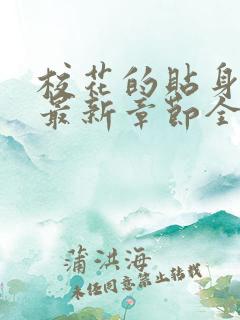 校花的贴身
最新章节全
蒲洪海
未经同意禁止转载